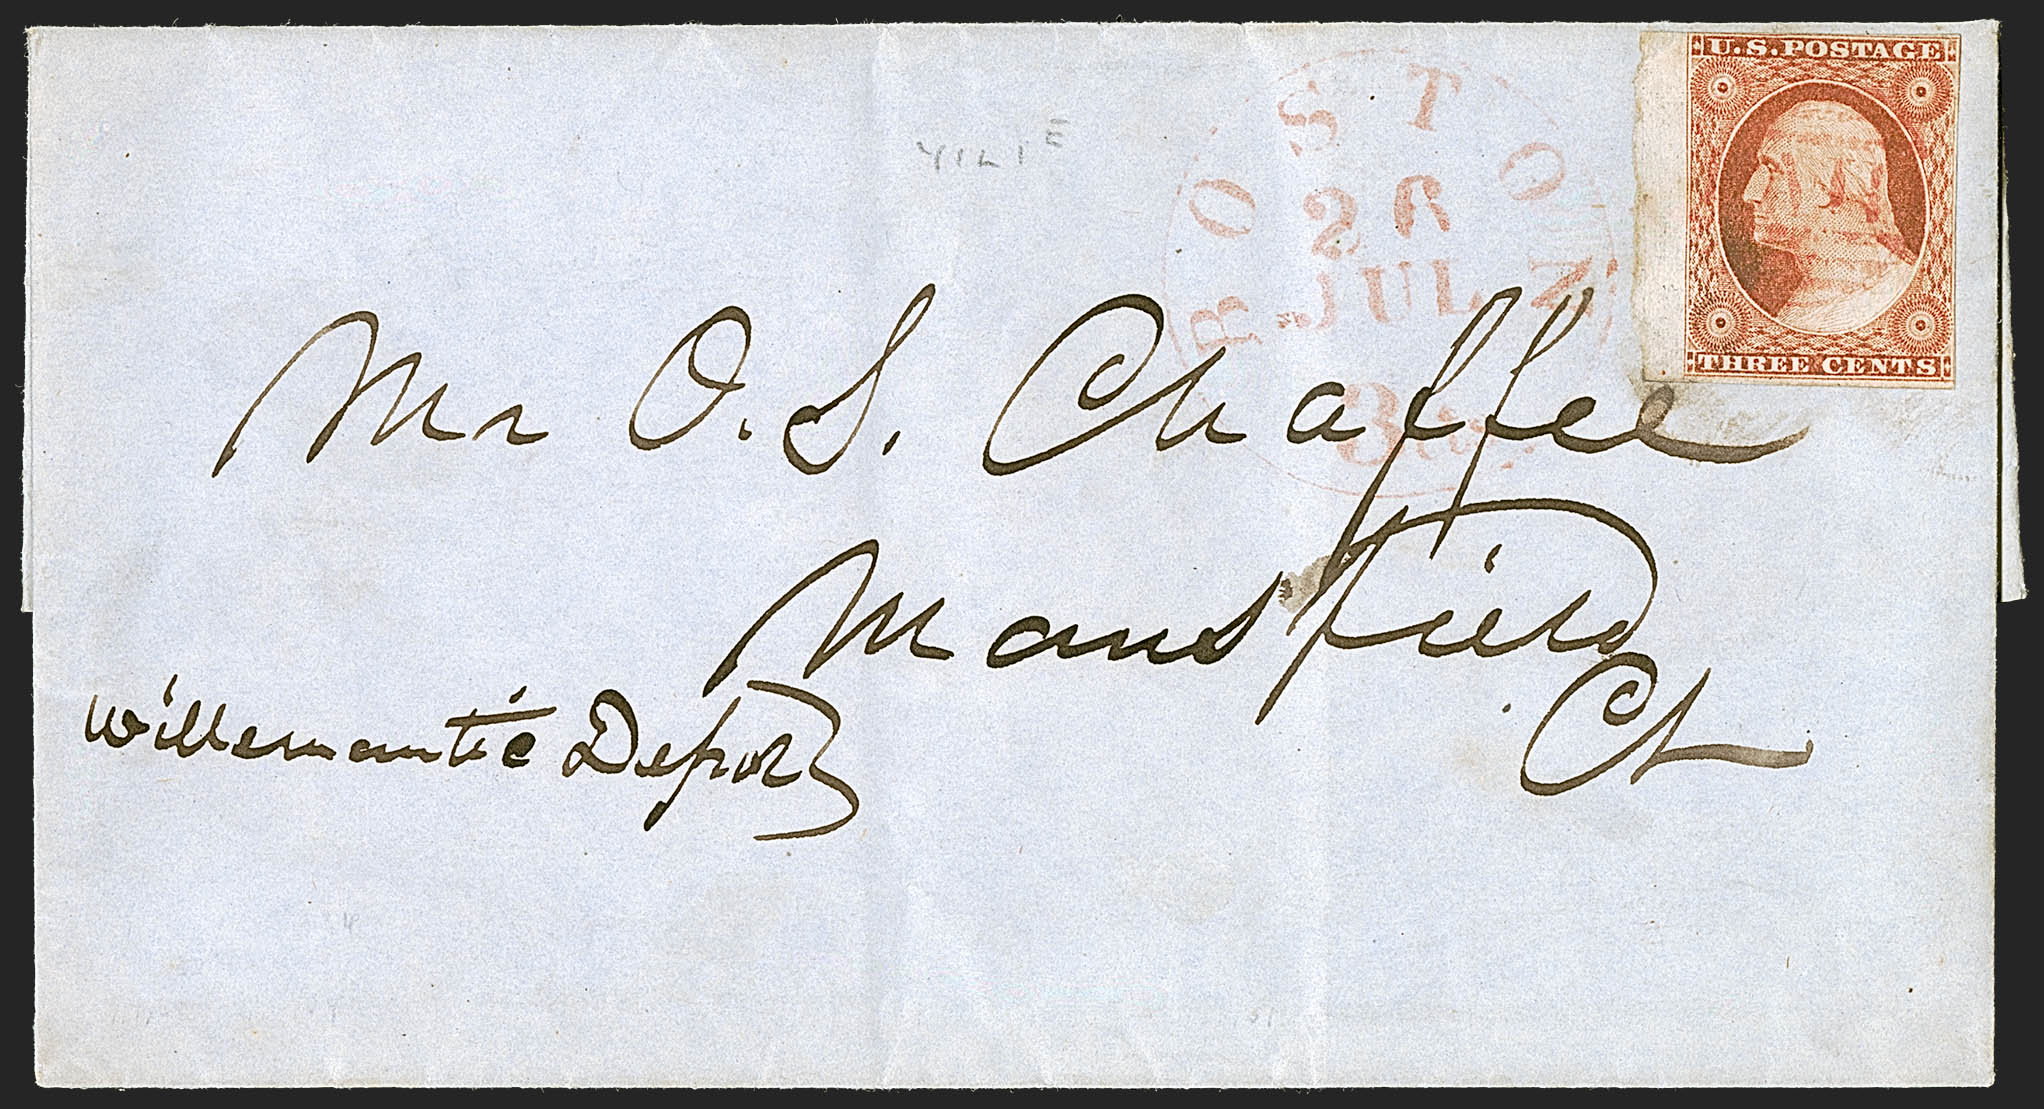 U.S. POSTAGE
THREE CENTS
BOSTON
26
JUL
3 cts.
Mr O. S. Chaffee
Mansfield
Ct
Willemantic Depot